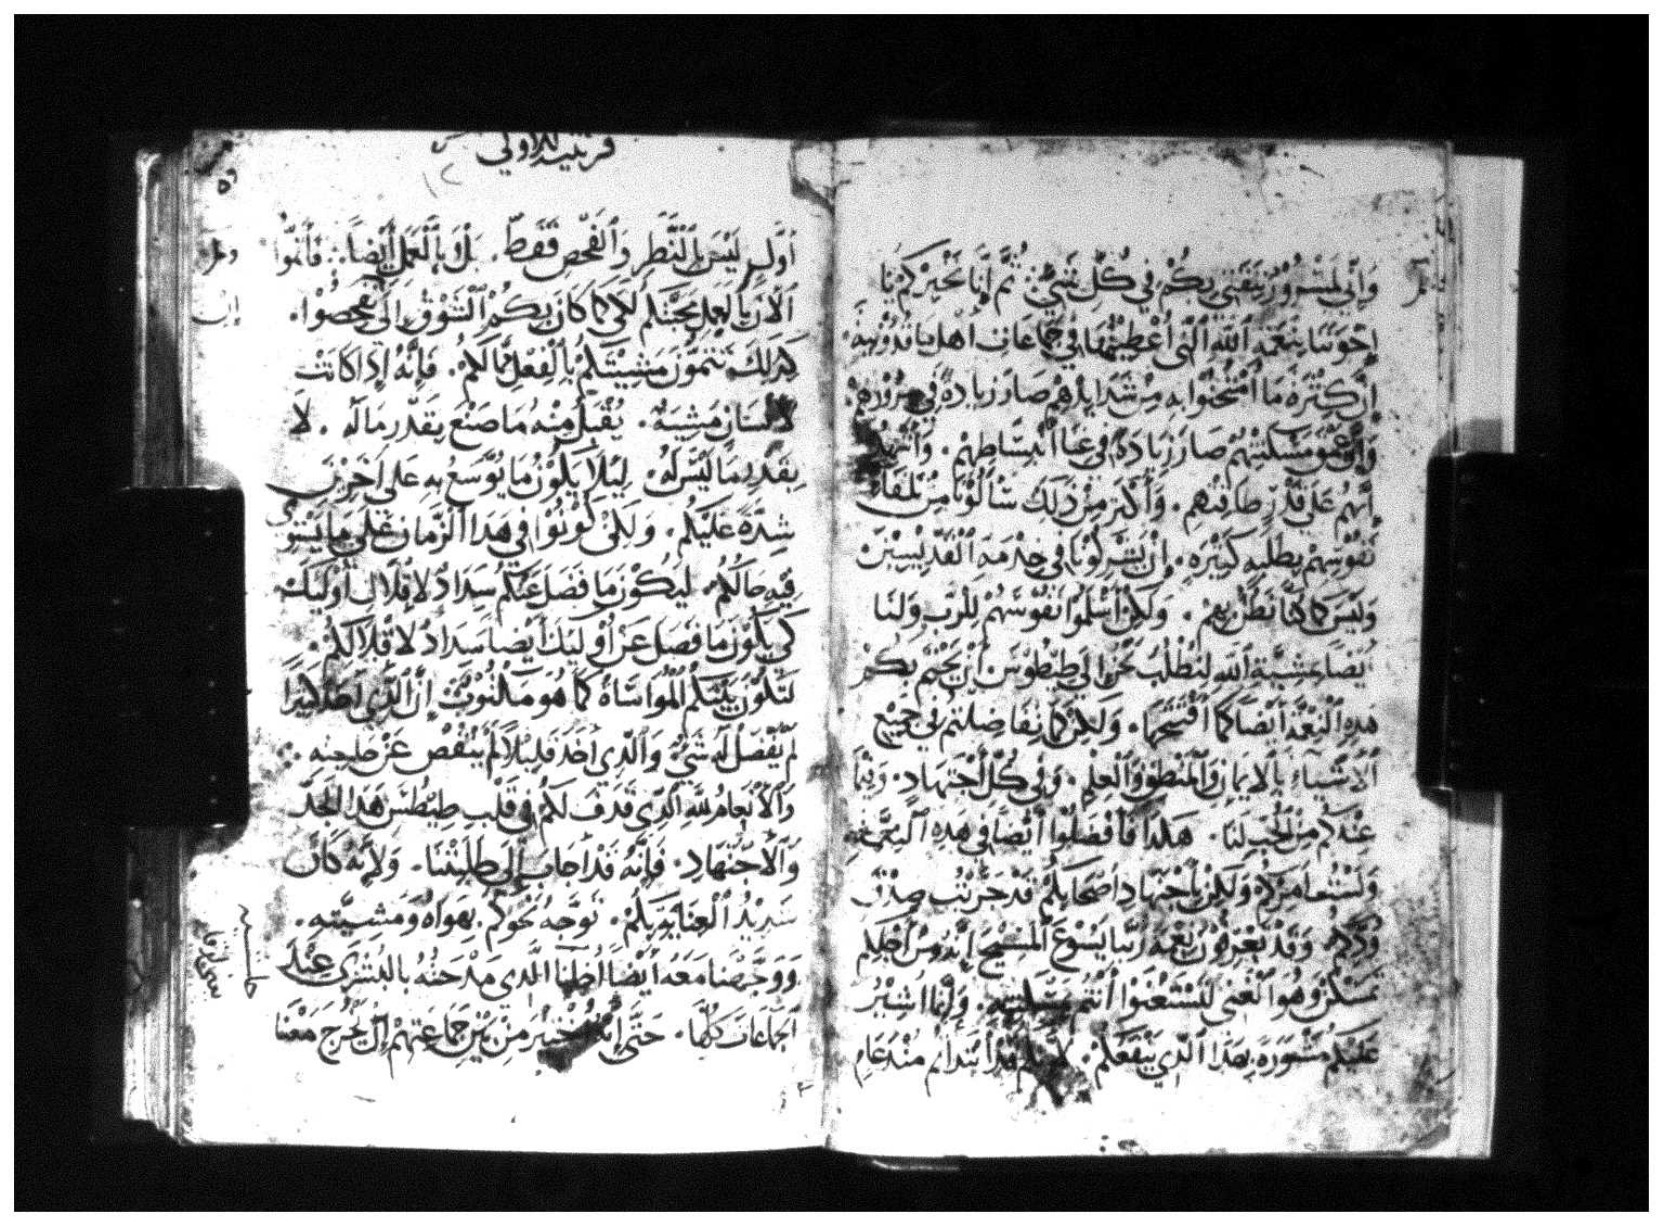 وَإِنِّي لَمَسْرُورٌ بِثِقَتِي بِكُمْ فِي كُلِّ شَيْءٍ ثُمَّ إِنَّا نُخْبِرُكُمْ يَا
إِخْوَتَنَا بِنِعْمَةِ اللَّهِ الَّتِي أُعْطِيتُهَا فِي جَمَاعَاتِ أَهْلِ مَاقَدُونِيَةَ
إِنَّ كِثْرَةَ مَا امْتُحِنُوا بِهِ مِنْ شَدَايِدِهِمْ صَارَ زِيَادَةً فِي سُرُورِهِمْ
وَإِنَّ عُمْقَ مَسْكَنَتِهُمْ صَارَ زِيَادَةً فِي غِنَا انْبِسَاطِهِمْ . وَأَشْهَدُ
أَنَّهُمْ عَلَى قَدْرِ طَاقَتِهِمْ . وَأَكْثَرَ مِنْ ذَلِكَ سَأَلُونَا مِنْ تِلْقَاءِ
نُفُوسِهِمْ بِطِلْبَةٍ كَثِيرَةٍ . إِنْ يَشْرَكُونَا فِي خِدْمَةِ الْقِدِّيسِينَ
وَلَيْسَ كَمَا كُنَّا نَظُنُّ بِهِمْ . وَلَكِنْ أَسْلَمُوا نُفُوسَهُمْ لِلرَّبِّ وَلَنَا
أَيْضًا بِمَشِيَّةِ اللَّهِ لِنَطْلُبَ نَحْنُ إِلَى طِيطُوسَ أَنْ يَخْتِمَ بِكُمْ
هَذِهِ النِّعْمَةَ أَيْضًا كَمَا افْتَتَحَهَا . وَلَكِنْ كَمَا تَفَاضَلْتُمْ فِي جَمِيعِ
الْأَشْيَاءِ بِالْإِيمَانِ وَالْمَنْطِقِ وَالْعِلْمِ . وَفِي كُلِّ اجْتِهَادٍ . وَبِمَا
عِنْدَكُمْ مِنَ الْحُبِّ لَنَا . هَكَذَا فَافْضَلُوا أَيْضًا فِي هَذِهِ النِّعْمَةِ
وَلَسْتُ آمُرُكُمْ وَلَكِنْ بِاجْتِهَادِ أَصْحَابِكُمْ قَدْ جَرَّبْتُ صِدْقَ
وُدِّكُمْ وَقَدْ تَعْرِفُونَ نِعْمَةَ رَبِّنَا يَسُوعَ الْمَسِيحِ إِنَّهُ مِنْ أَجْلِكُمْ
تَمَسْكَنَ وَهُوَ الْغَنِيُّ لِتَسْتَغْنُوا أَنْتُمْ بِمَسْكَنَتِهِ . وَإِنَّمَا أُشِيرُ
عَلَيْكُمْ مَشُورَةً بِهَذَا الَّذِي يَنْفَعُكُمْ . لِأَنَّكُمْ قَدِ ابْتَدَأْتُمْ مُنْذُ عَامٍ
قرنتيه الأولى
١٢
أَوَّلٍ لَيْسَ بِالنَّظَرِ وَالْفَحْصِ فَقَطْ . بَلْ وَبِالْعَمَلِ أَيْضًا . فَأَتِمُّوا
الْآنَ بِالْعَمَلِ نِيَّتَكُمْ لِكَيْ كَمَا كَانَ بِكُمُ التَّوْقُ إِلَى تَفْحَصُوا .
كَذَلِكَ تُتِمُّونَ مَشِيَّتَكُمْ بِالْفِعْلِ بِمَا لَكُمْ . فَإِنَّهُ إِذَا كَانَتْ
لِلْإِنْسَانِ مَشِيَّةٌ . يُقْبَلُ مِنْهُ مَا صَنَعَ بِقَدْرِ مَا لَهُ . لَا
بِقَدْرِ مَا لَيْسَ لَهُ لِيَلَّا يَكُونَ مَا يُوَسَّعُ بِهِ عَلَى آخَرِينَ
شِدَّةً عَلَيْكُمْ . وَلَكِنْ كُونُوا فِي هَذَا الزَّمَانِ عَلَى مَا يَسْتَوِي
فِيهِ حَالُكُمْ . لِيَكُونَ مَا فَضَلَ عَنْكُمْ سَدَادًا لِإِقْلَالِ أُولَيِكَ
كَيْ يَكُونَ مَا فَضَلَ عَنْ أُولَيِكَ أَيْضًا سَدَادًا لِإِقْلَالِكُمْ .
لِتَكُونَ بَيْنَكُمُ الْمُوَاسَاةُ كَمَا هُوَ مَكْتُوبٌ إِنَّ الَّذِي أَخَذَ كَثِيرًا
لَمْ يَفْضُلْ لَهُ شَيْءٌ وَالَّذِي أَخَذَ قَلِيلًا لَمْ يَنْقُصْ عَنْ حَاجَتِهِ .
وَالْإِنْعَامُ لِلَّهِ الَّذِي قَذَفَ لَكُمْ فِي قَلْبِ طِيطُسَ هَذَا الْجِدَّ
وَالْاجْتِهَادَ . فَإِنَّهُ قَدْ أَجَابَ إِلَى طِلْبَتِنَا . وَلِأَنَّهُ كَانَ
شَدِيدُ الْعِنَايَةِ بِكُمْ . تَوَجَّهَ نَحْوَكُمْ بِهَوَاهُ وَمَشِيَّتِهِ .
وَوَجَّهْنَا مَعَهُ أَيْضًا أَخَانَا الَّذِي مِدْحَتُهُ بِالْبُشْرَى عِنْدَ
الْجَمَاعَاتِ كُلِّهَا . حَتَّى إِنَّهُ اخْتِيرَ مِنْ بَيْنِ جَمَاعَتِهِمْ أَنْ يَخْرُجَ مَعَنَا